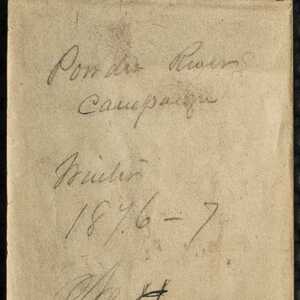 Powder River
Campaign
Winter
1876-7